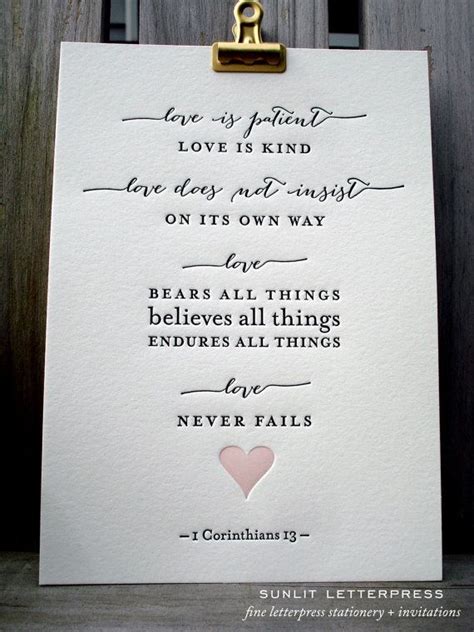 love is patient
LOVE IS KIND
love does not insist
ON ITS OWN WAY
love
BEARS ALL THINGS
believes all things
ENDURES ALL THINGS
love
NEVER FAILS
– 1 Corinthians 13 –
SUNLIT LETTERPRESS
fine letterpress stationery + invitations